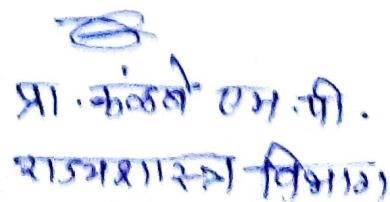 प्रा. कंळबे एम. पी.
राज्यशास्त्र विभाग